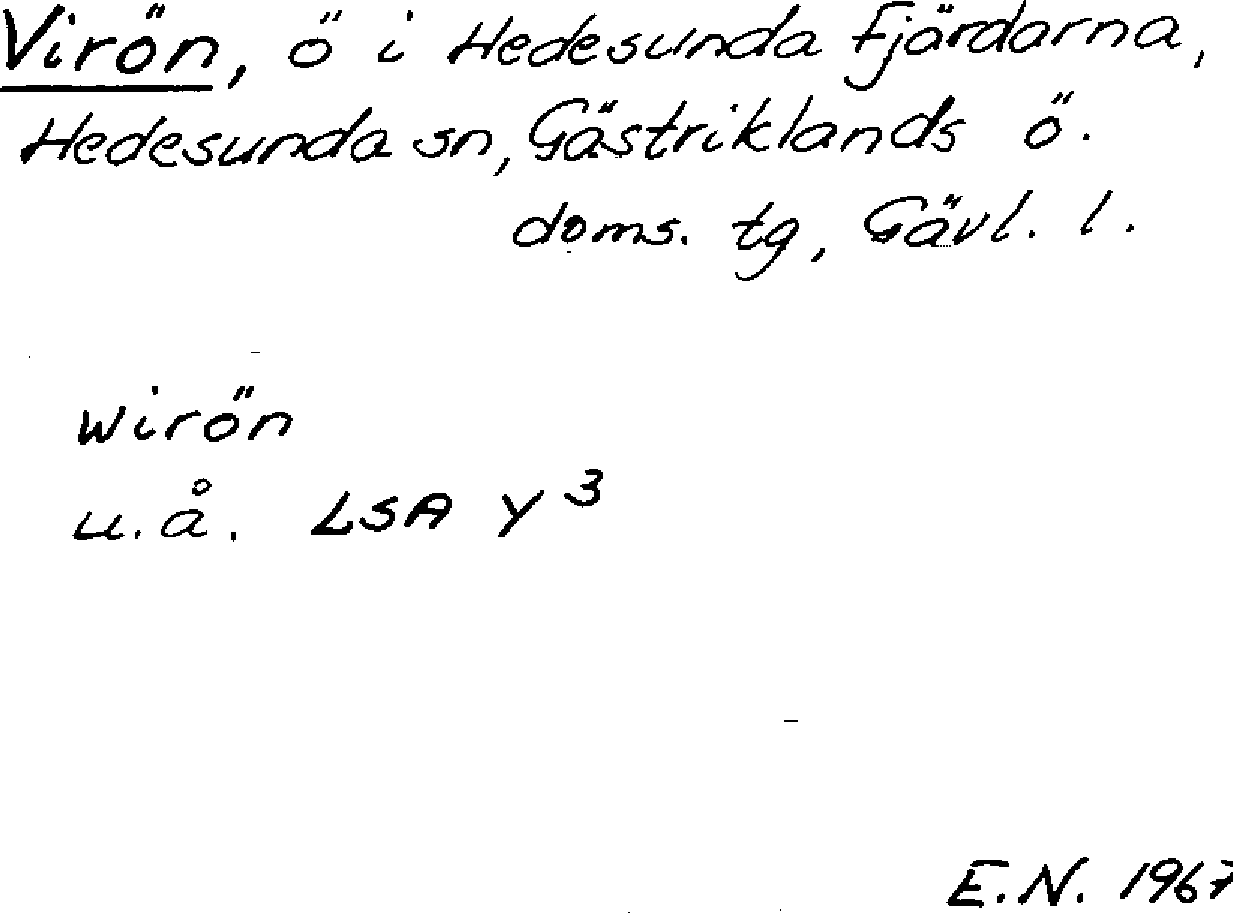 Virön, ö i Hedesunda Fjärdarna,
Hedesunda sn, Gästriklands ö.
doms. tg, Gävl. l.
Wirön
u.å. LSA Y 3
E.N. 1967